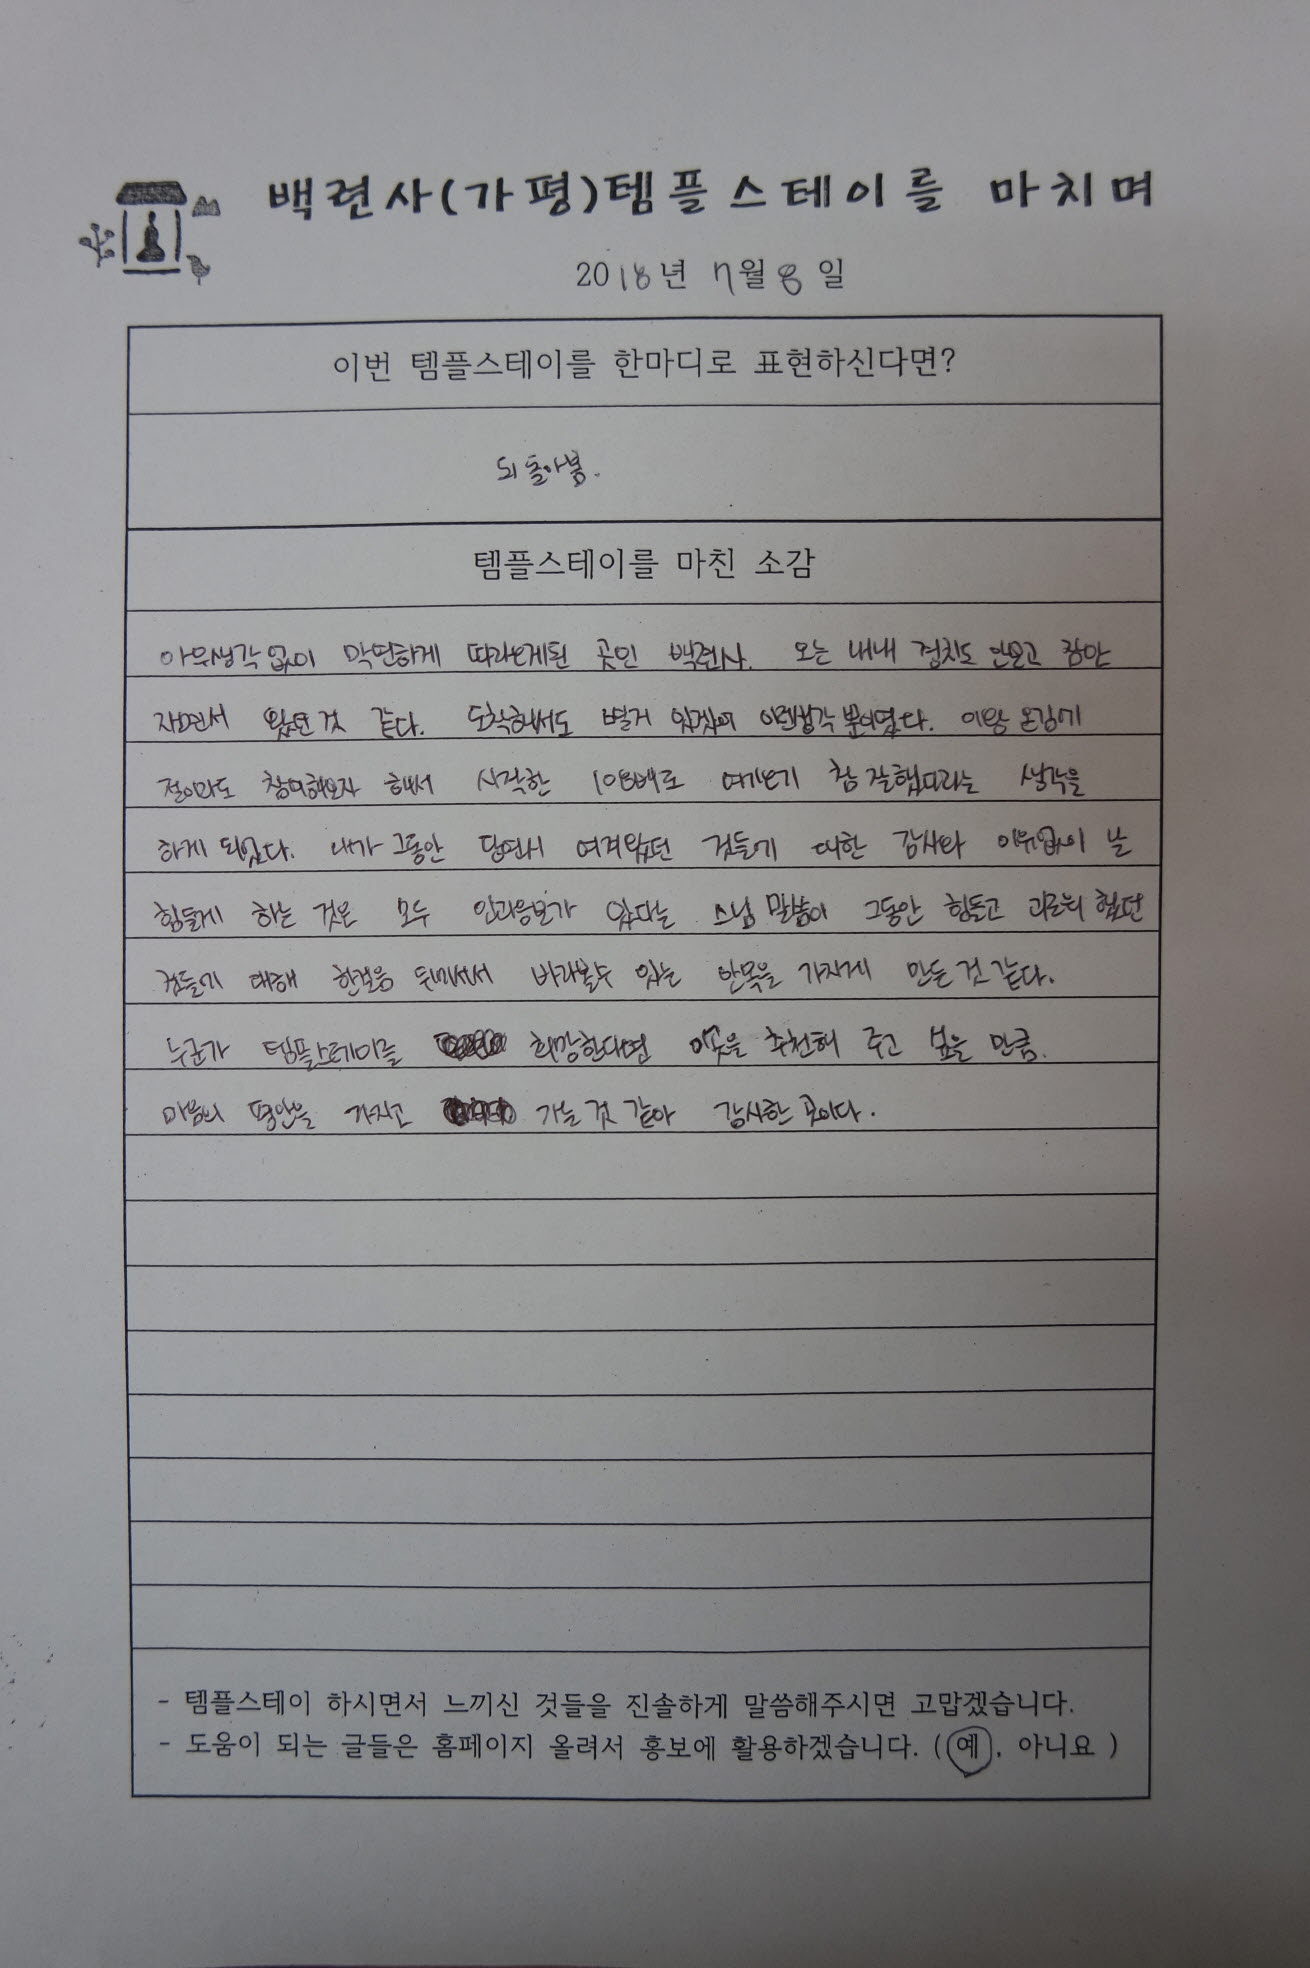 백련사(가평)템플스테이를 마치며
2018년 7월 8일
이번 템플스테이를 한마디로 표현하신다면?
되돌아봄.
템플스테이를 마친 소감
아무생각 없이 막연하게 따라오게된 곳인 백련사. 오는 내내 경치도 안보고 잠만
자면서 왔던 것 같다. 도착해서도 별거 있겠어 이런생각 뿐이었다. 이왕 온김에
절이라도 참여해보자 해서 시작한 108배로 여기오기 참 잘했다라는 생각을
하게 되었다. 내가 그동안 당연시 여겨왔던 것들에 대한 감사와 이유없이 날
힘들게 하는 것은 모두 인과응보가 있다는 스님 말씀이 그동안 힘들고 괴로워 했던
것들에 대해 한걸음 뒤에서서 바라볼수 있는 안목을 가지게 만든 것 같다.
누군가 템플스테이를 희망한다면 이곳을 추천해 주고 싶을 만큼
마음의 평안을 가지고 가는 것 같아 감사한 곳이다.
- 템플스테이 하시면서 느끼신 것들을 진솔하게 말씀해주시면 고맙겠습니다.
- 도움이 되는 글들은 홈페이지 올려서 홍보에 활용하겠습니다. (예, 아니요 )